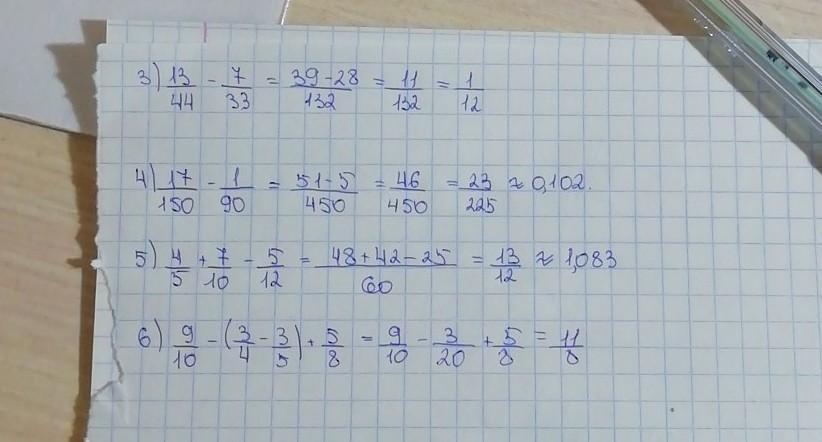 3) 13/44 - 7/33 = 39-28/132 = 11/132 = 1/12
4) 17/150 - 1/90 = 51-5/450 = 46/450 = 23/225 ≈ 0,102.
5) 4/5 + 7/10 - 5/12 = 48+42-25/60 = 13/12 ≈ 1,083
6) 9/10 - (3/4 - 3/5) + 5/8 = 9/10 - 3/20 + 5/8 = 11/8